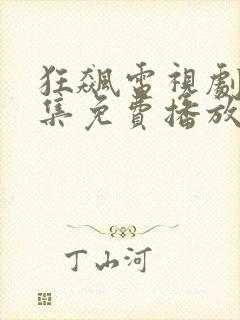 狂飆電視劇
集免費播放
丁山河